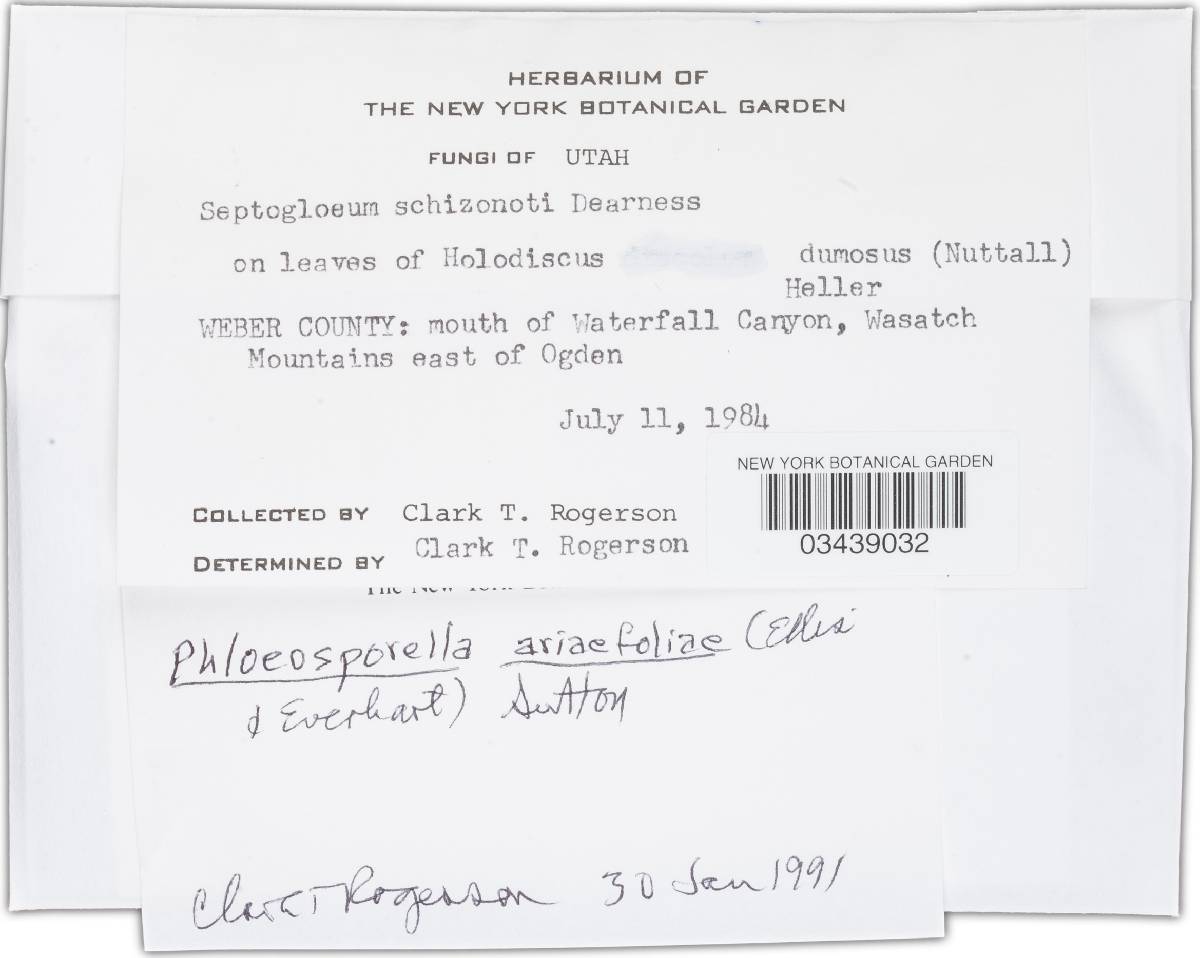 HERBARIUM OF
THE NEW YORK BOTANICAL GARDEN
FUNGI OF UTAH
Septogloeum schizonoti Dearness
on leaves of Holodiscus dumosus (Nuttall)
Heller
WEBER COUNTY: mouth of Waterfall Canyon, Wasatch
Mountains east of Ogden
July 11, 1984
NEW YORK BOTANICAL GARDEN
03439032
COLLECTED BY Clark T. Rogerson
DETERMINED BY Clark T. Rogerson
The New York
Phloeosporella ariaefoliae (Ellis
& Everhart) Sutton
Clark T Rogerson 30 Jan 1991